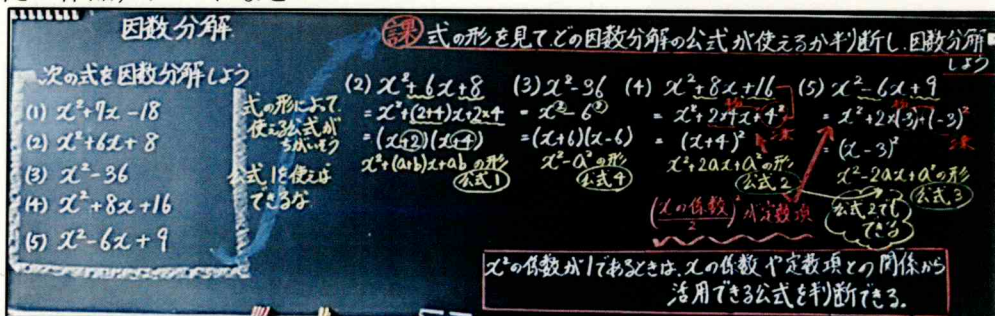 因数分解
次の式を因数分解しよう
(1) x²+7x-18
(2) x²+6x+8
(3) x²-36
(4) x²+8x+16
(5) x²-6x+9
式の形によって
使える公式が
ちがいそう
公式1を使えば
できるな
課 式の形を見て、どの因数分解の公式が使えるか判断し、因数分解
しよう
(2) x²+6x+8
=x²+(2+4)x+2×4
=(x+2)(x+4)
x²+(a+b)x+abの形
公式1
(3) x²-36
=x²-6²
=(x+6)(x-6)
x²-a²の形
公式4
(4) x²+8x+16
=x²+2×4x+4²
=(x+4)²
x²+2ax+a²の形
公式2
(xの係数/2)²が定数項
(5) x²-6x+9
=x²+2×(-3)+(-3)²
=(x-3)²
x²-2ax+a²の形
公式3
公式2でも
できそう
x²の係数が1であるときは、xの係数や定数項との関係から
活用できる公式を判断できる.